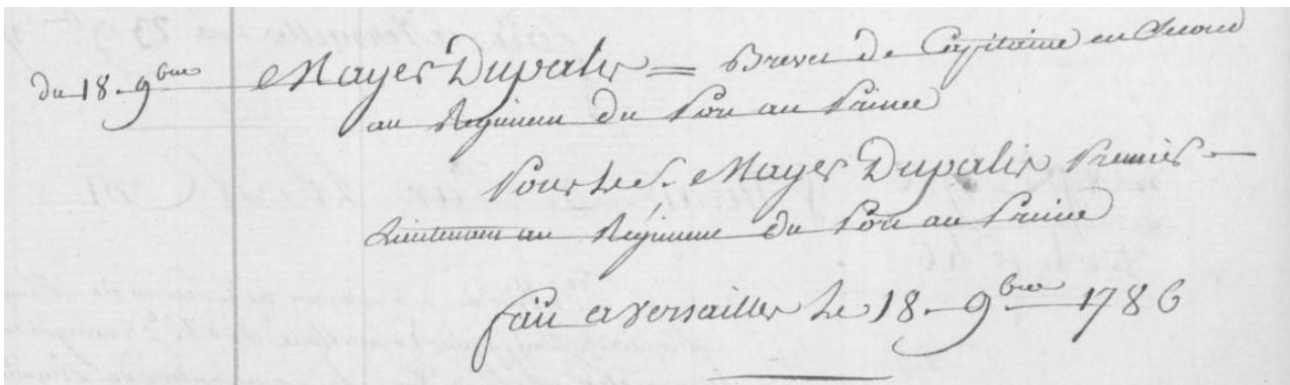 du 18. 9bre Mayer Dupalis = Brevet de Capitaine en Second
au Régiment du Port au Prince
Pour le S. Mayer Dupalis Premier
Lieutenant au Régiment du Port au Prince
fait à Versailles le 18. 9bre 1786